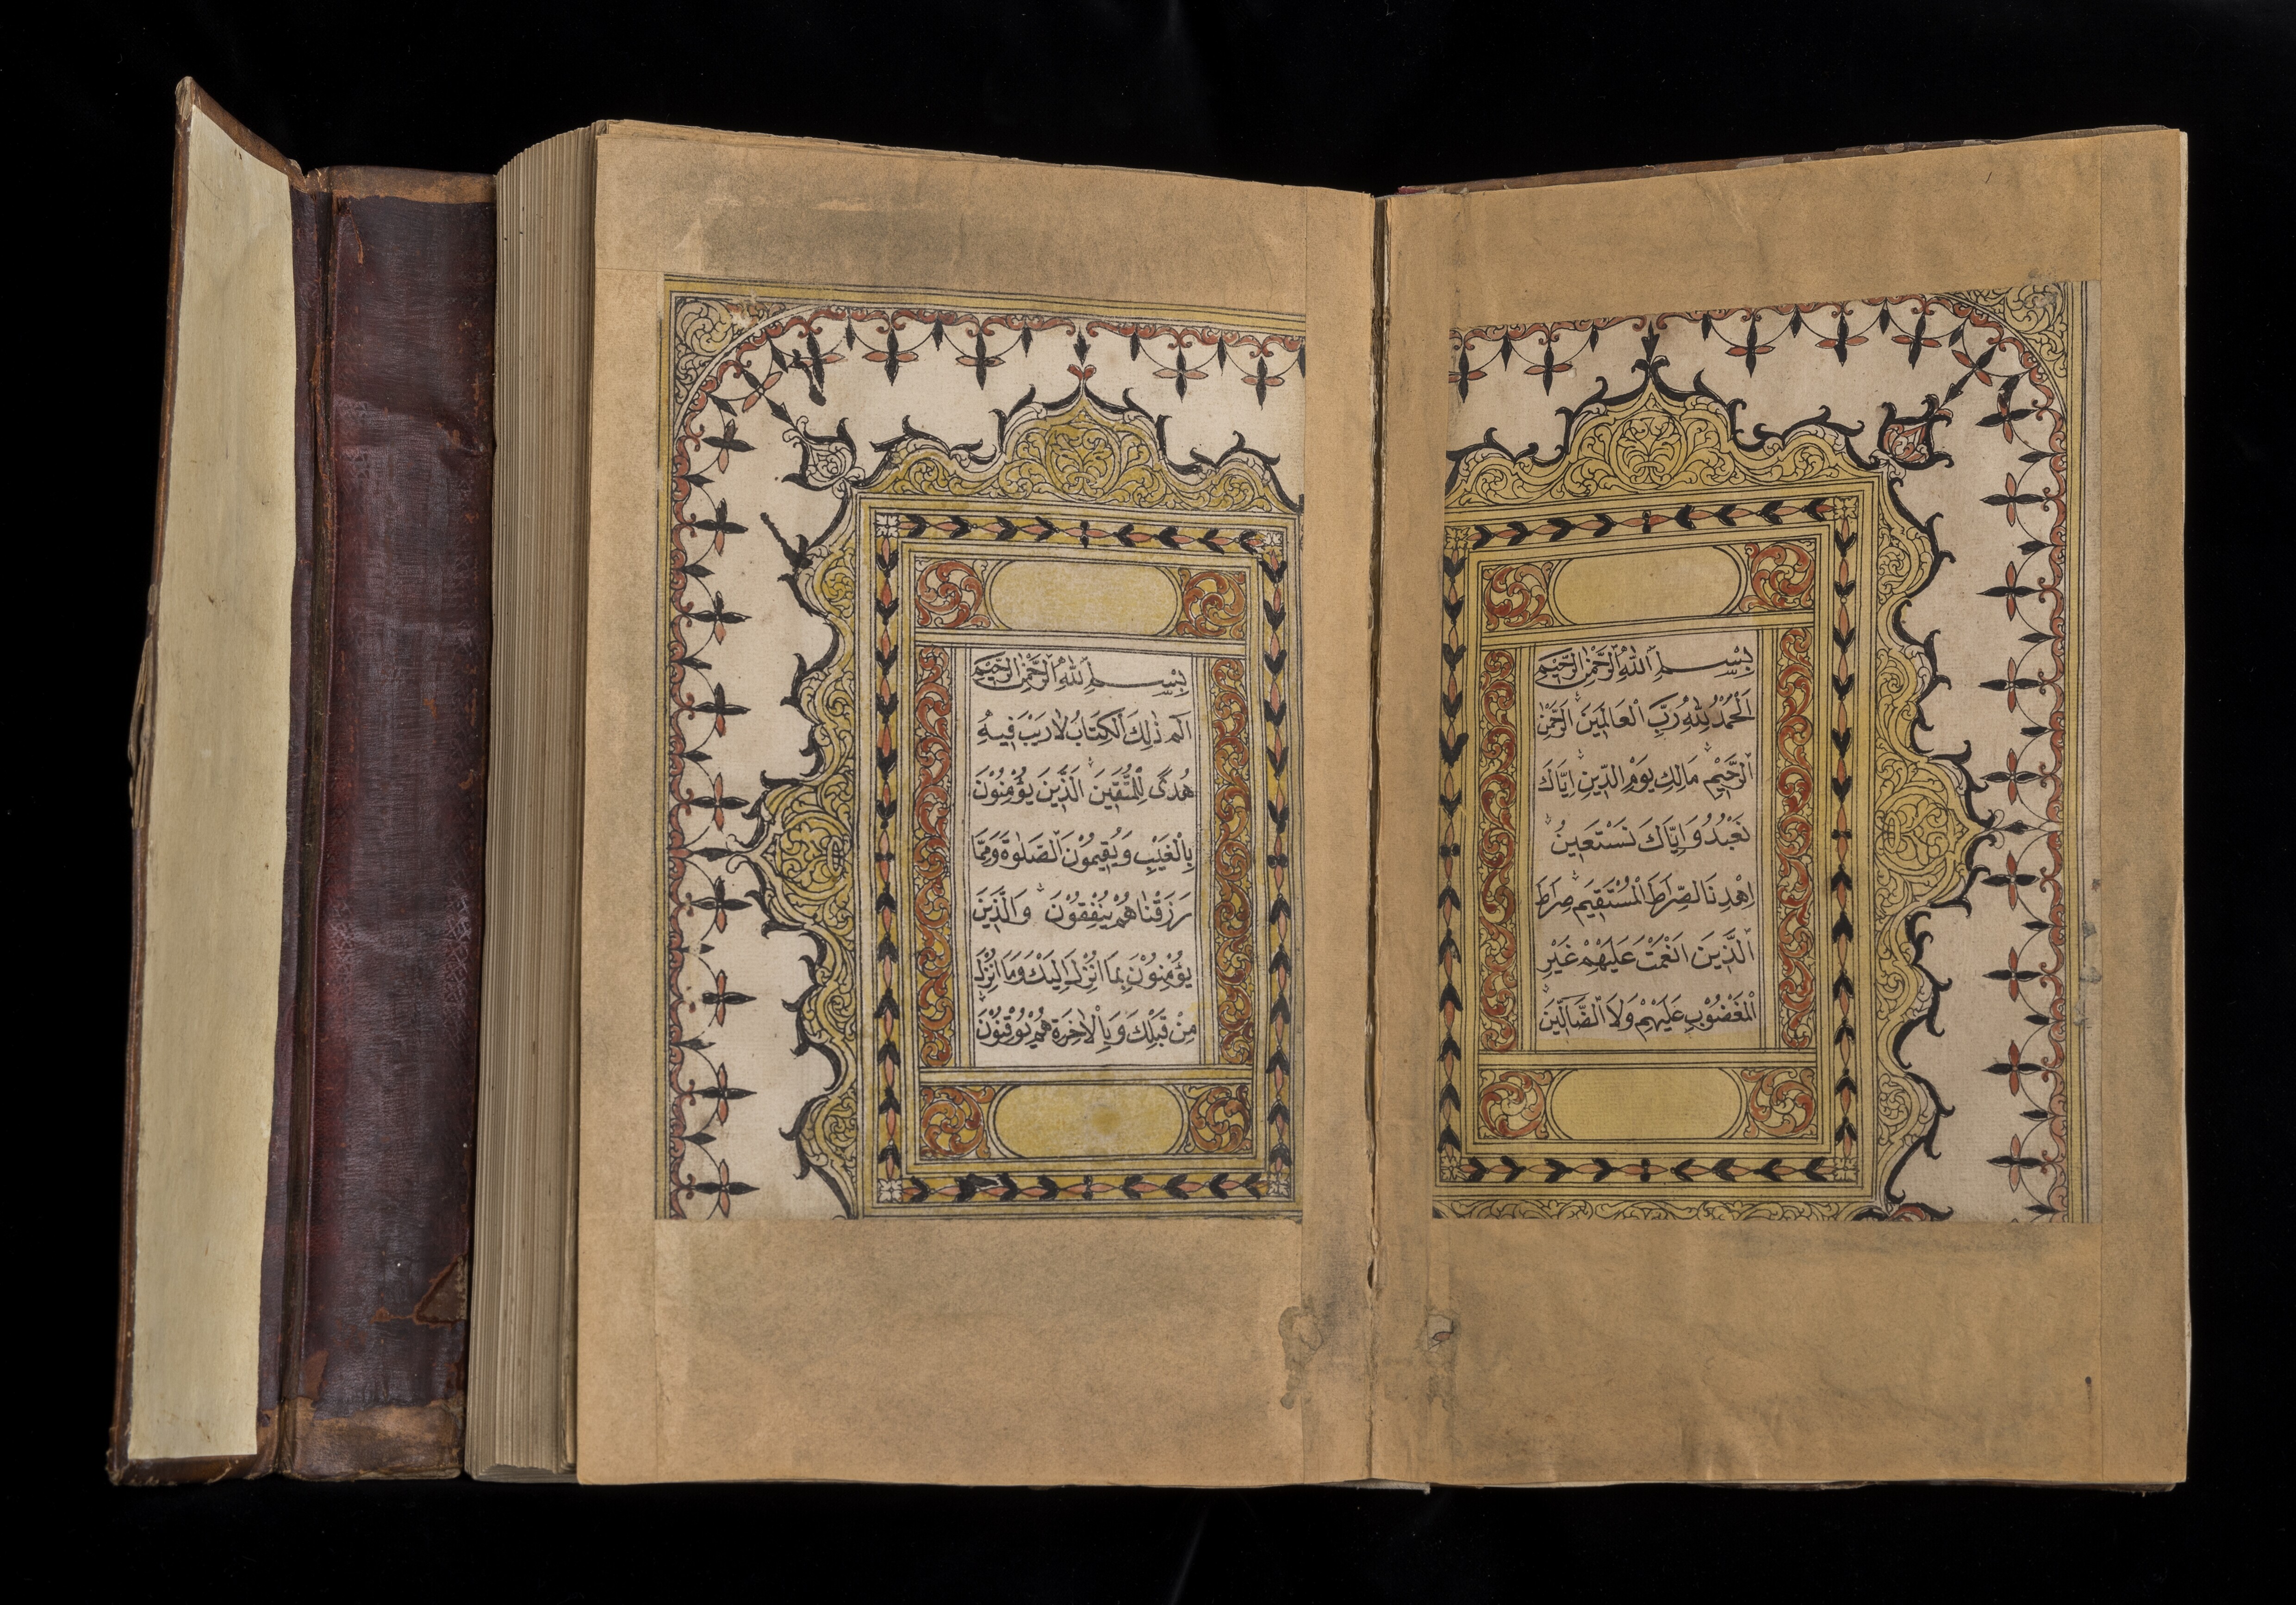 بِسْمِ اللهِ الرَّحْمٰنِ الرَّحِيْمِ
اَلْحَمْدُ لِلّٰهِ رَبِّ الْعَالَمِيْنَ الرَّحْمٰنِ
الرَّحِيْمِ مَالِكِ يَوْمِ الدِّيْنِ اِيَّاكَ
نَعْبُدُ وَاِيَّاكَ نَسْتَعِيْنُ
اِهْدِنَا الصِّرَاطَ الْمُسْتَقِيْمَ صِرَاطَ
الَّذِيْنَ اَنْعَمْتَ عَلَيْهِمْ غَيْرِ
الْمَغْضُوْبِ عَلَيْهِمْ وَلَا الضَّالِّيْنَ
بِسْمِ اللهِ الرَّحْمٰنِ الرَّحِيْمِ
الٓمٓ ذٰلِكَ الْكِتَابُ لَا رَيْبَ فِيْهِ
هُدًى لِلْمُتَّقِيْنَ اَلَّذِيْنَ يُؤْمِنُوْنَ
بِالْغَيْبِ وَيُقِيْمُوْنَ الصَّلٰوةَ وَمِمَّا
رَزَقْنَاهُمْ يُنْفِقُوْنَ وَالَّذِيْنَ
يُؤْمِنُوْنَ بِمَا اُنْزِلَ اِلَيْكَ وَمَا اُنْزِلَ
مِنْ قَبْلِكَ وَبِالْاٰخِرَةِ هُمْ يُوْقِنُوْنَ